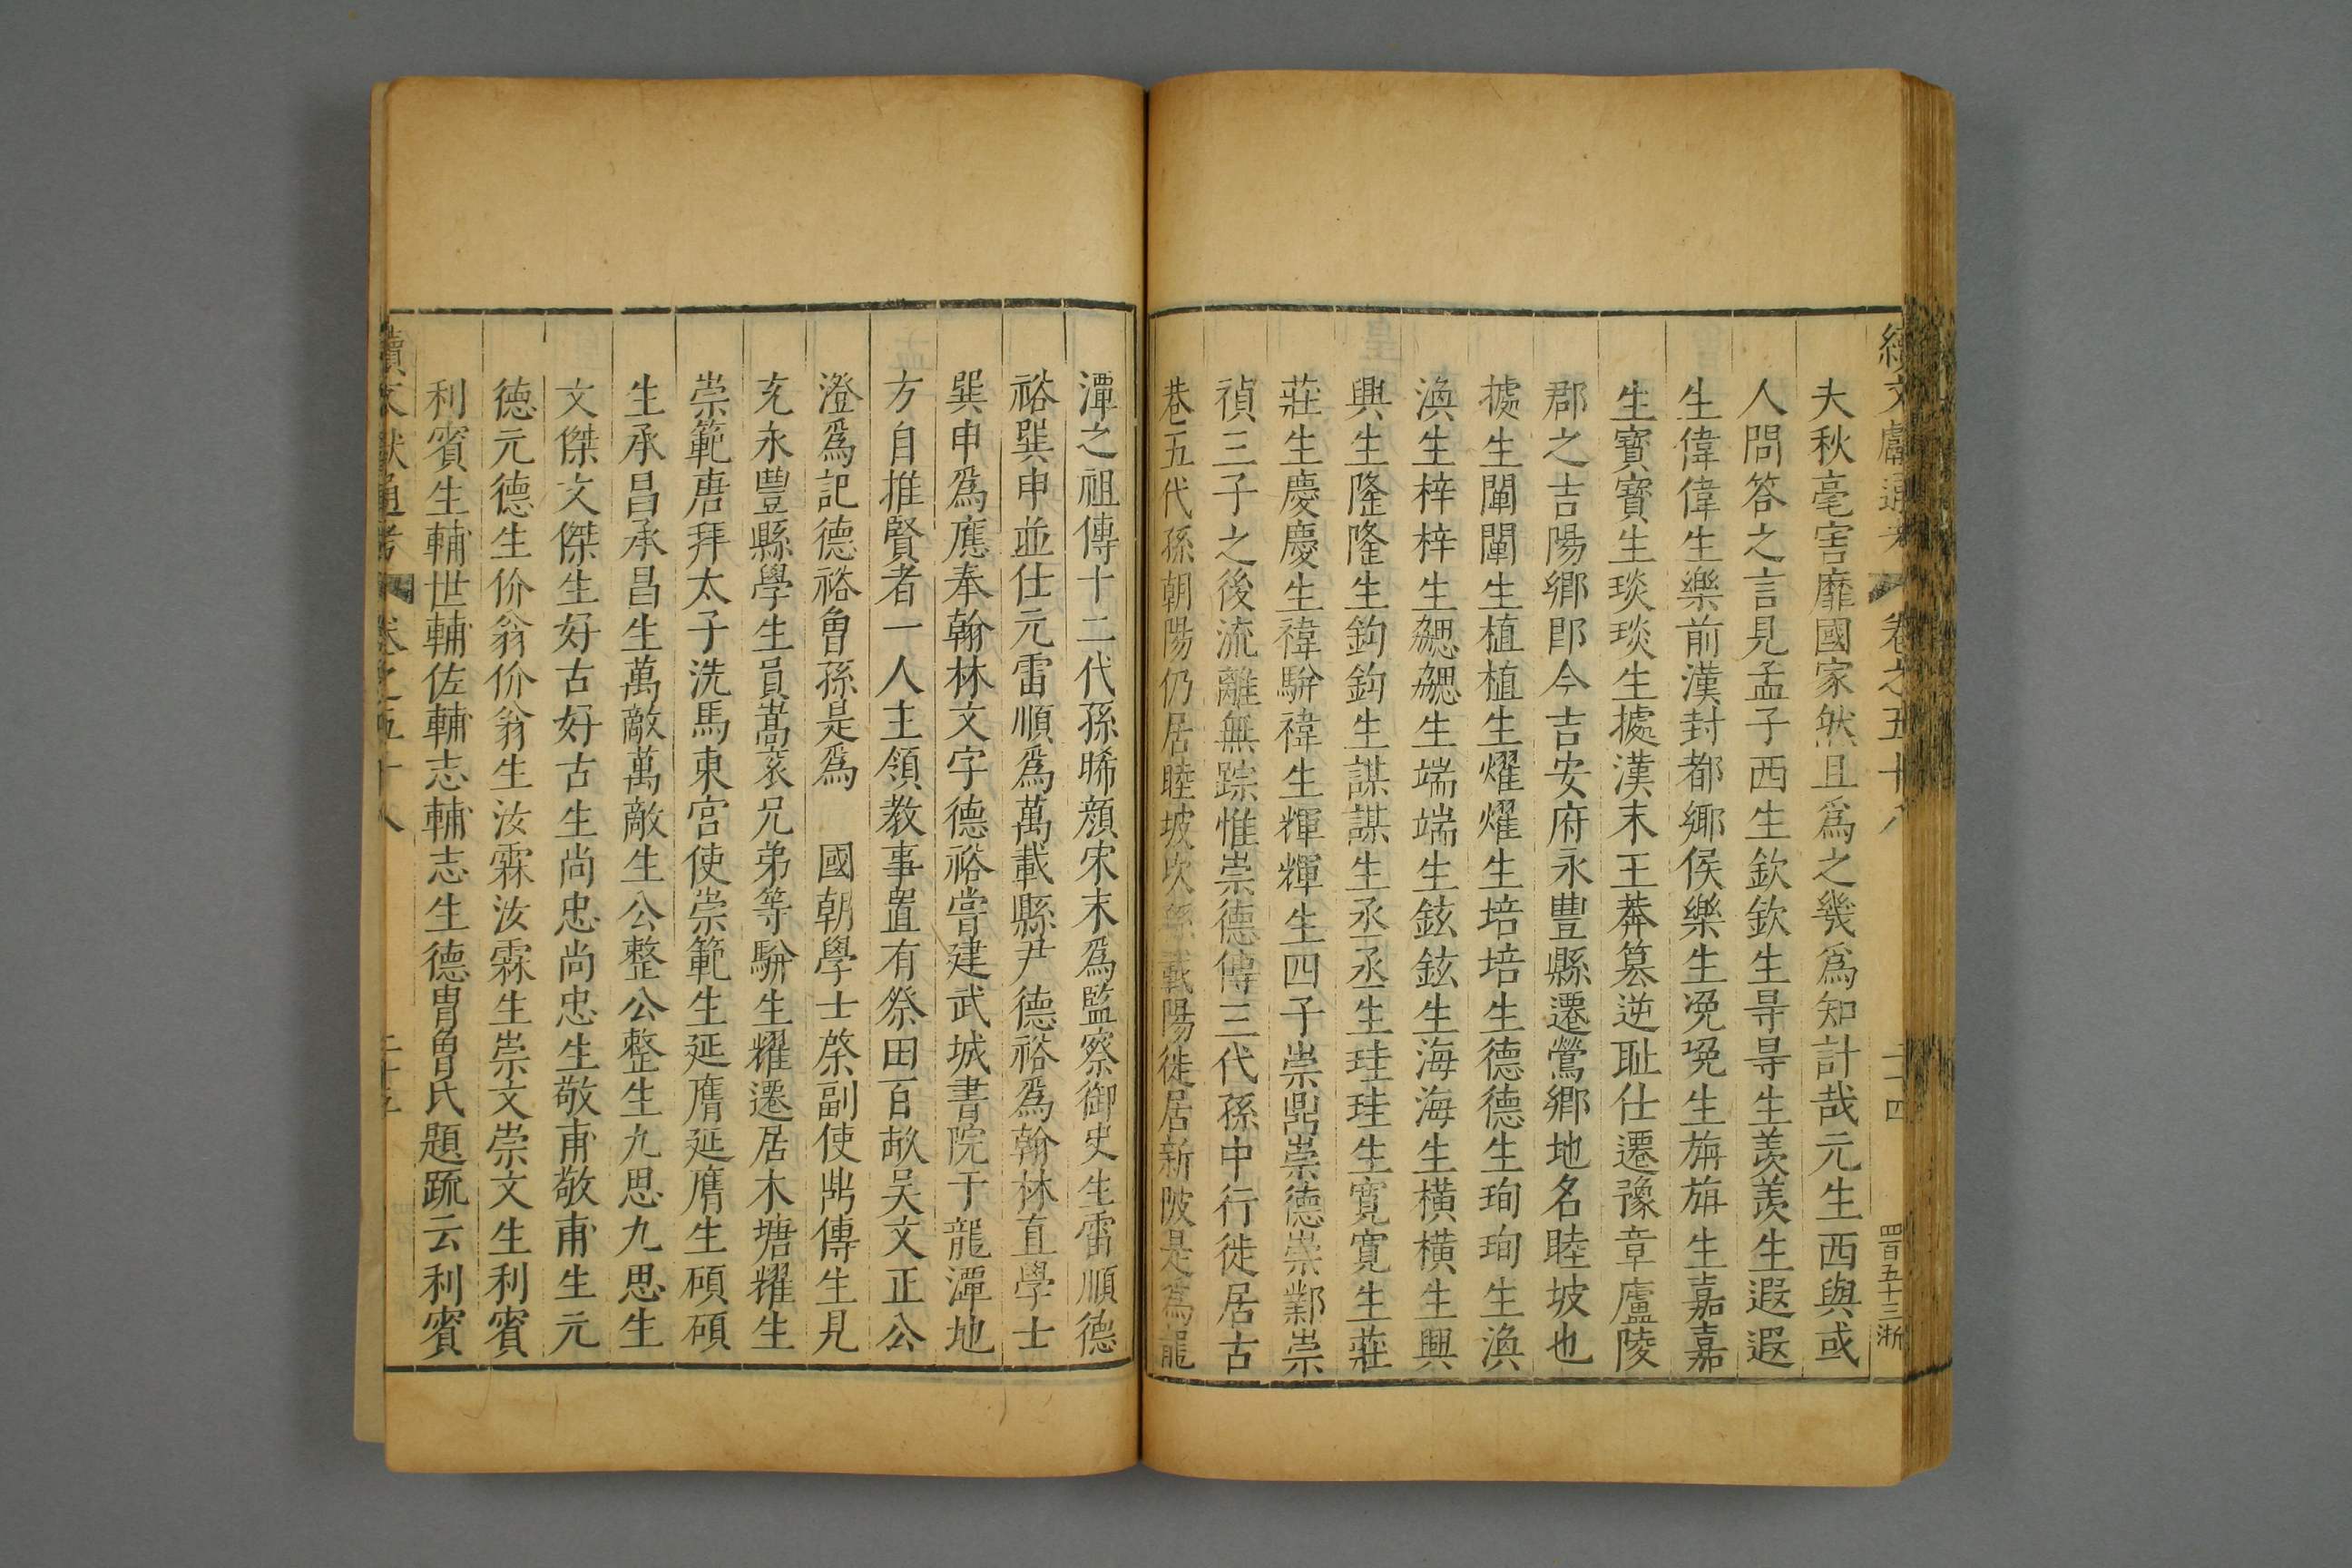 續文獻通考 卷之五十八 二十四 四百五十三浙
夫秋毫害靡國家然且爲之幾爲知計哉元生西與或
人問答之言見孟子西生欽欽生㝵㝵生羨羨生遐遐
生偉偉生樂前漢封都鄉侯樂生浼浼生旃旃生嘉嘉
生寳寳生琰琰生據漢末王莽簒逆耻仕遷豫章廬陵
郡之吉陽鄉郎今吉安府永豊縣遷鶯鄉地名睦坡也
據生闡闡生植植生耀耀生培培生德德生珣珣生渙
渙生梓梓生勰勰生端端生鉉鉉生海海生橫橫生興
興生隆隆生鈞鈞生謀謀生丞丞生珪珪生寛寛生莊
莊生慶慶生禕駢禕生輝輝生四子崇鼎崇德崇鄴崇
禎三子之後流離無踪惟崇德傳三代孫中行徙居古
巷五代孫朝陽仍居睦坡次孫載陽徙居新陂是爲龍
潭之祖傳十二代孫晞顔宋末爲監察御史生雷順德
裕巽申並仕元雷順爲萬載縣尹德裕爲翰林直學士
巽申爲應奉翰林文字德裕嘗建武城書院于龍潭地
方自推賢者一人主領教事置有祭田百畝吳文正公
澄爲記德裕曾孫是爲　國朝學士棨副使鼎傳生見
充永豐縣學生員嵩袤兄弟等駢生耀遷居木塘耀生
崇範唐拜太子洗馬東宮使崇範生延膺延膺生碩碩
生承昌承昌生萬敵萬敵生公整公整生九思九思生
文傑文傑生好古好古生尚忠尚忠生敬甫敬甫生元
德元德生价翁价翁生汝霖汝霖生崇文崇文生利賓
利賓生輔世輔佐輔志輔志生德胄曾氏題䟽云利賓
續文獻通考 卷之五十八